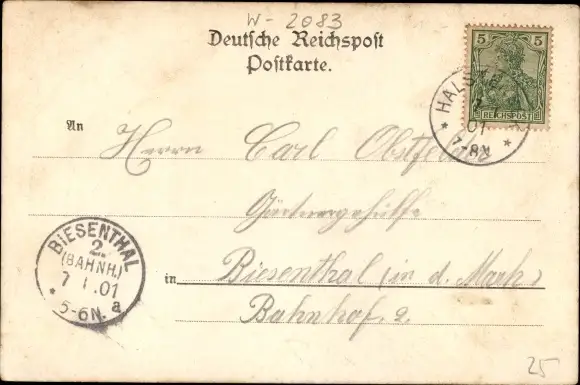 W - 2083
Deutsche Reichspost
Postkarte.
5 5
REICHSPOST
7 1
01
7-8N.
An Herrn Carl
Gärtnergehülfe
in Biesenthal (in d. Mark)
Bahnhof. 2.
BIESENTHAL
2
(BAHNH.)
7 1.01
* 5-6N. a
25